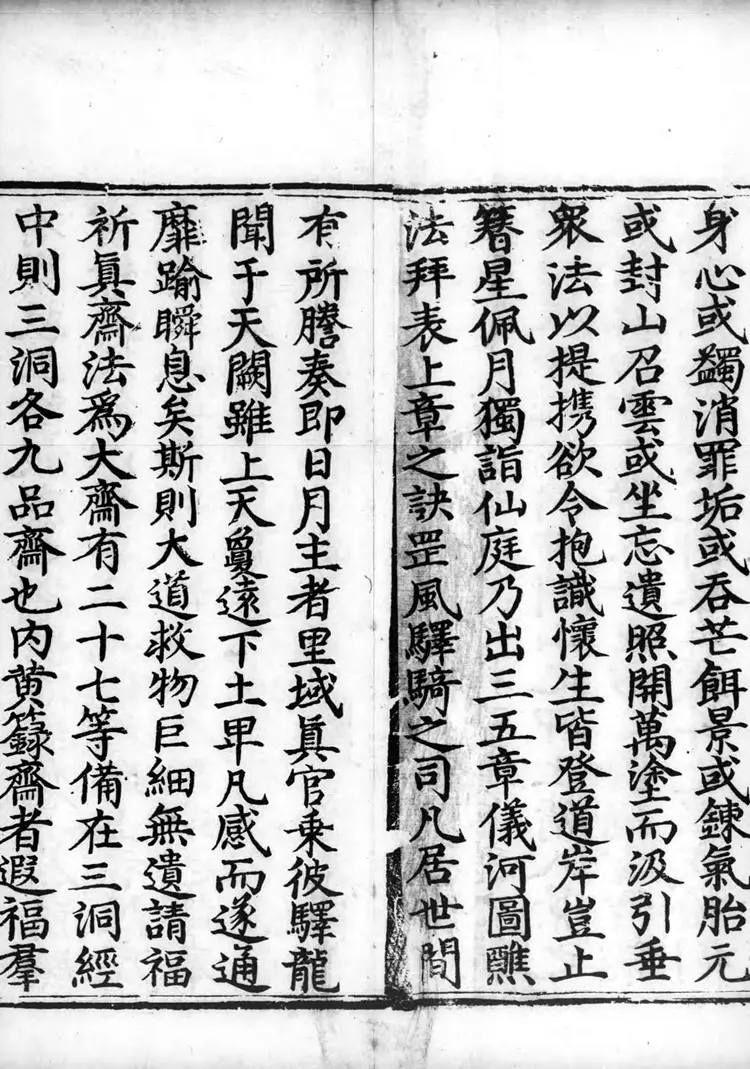 身心或蠲消罪垢或吞芒餌景或錬氣胎元
或封山召雲或坐忘遺照開萬塗而汲引垂
衆法以提携欲令抱識懷生皆登道岸豈止
簪星佩月獨詣仙庭乃出三五章儀河圖醮
法拜表上章之訣罡風驛騎之司凡居世間
有所謄奏即日月主者里域眞官乗彼驛龍
聞于天闕雖上天敻遠下土卑凡感而遂通
靡踰瞬息矣斯則大道救物巨細無遺請福
祈眞齋法爲大齋有二十七等備在三洞經
中則三洞各九品齋也内黄籙齋者遐福羣